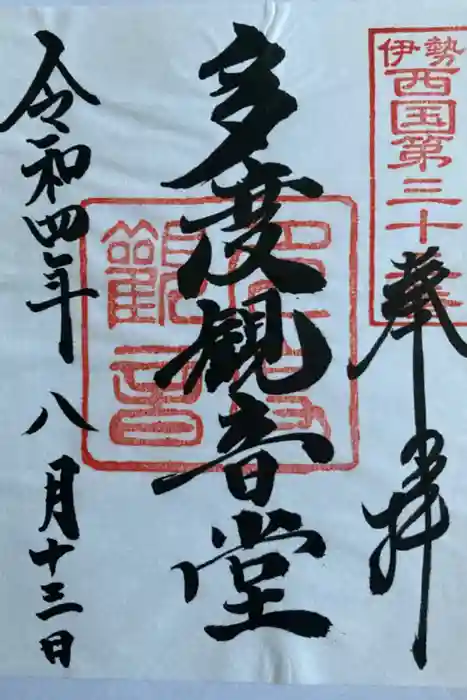 伊勢
西国第三十
奉拝
多度観音堂
多度
観音
令和四年八月十三日